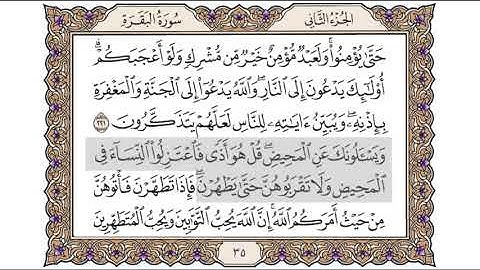 الجزء الثاني
سورة البقرة
حَتَّىٰ يُؤْمِنُوا۟ ۚ وَلَعَبْدٌ مُّؤْمِنٌ خَيْرٌ مِّن مُّشْرِكٍ وَلَوْ أَعْجَبَكُمْ ۗ
أُو۟لَـٰٓئِكَ يَدْعُونَ إِلَى ٱلنَّارِ ۖ وَٱللَّهُ يَدْعُوٓا۟ إِلَى ٱلْجَنَّةِ وَٱلْمَغْفِرَةِ
بِإِذْنِهِۦ ۖ وَيُبَيِّنُ ءَايَـٰتِهِۦ لِلنَّاسِ لَعَلَّهُمْ يَتَذَكَّرُونَ ٢٢١
وَيَسْـَٔلُونَكَ عَنِ ٱلْمَحِيضِ ۖ قُلْ هُوَ أَذًى فَٱعْتَزِلُوا۟ ٱلنِّسَآءَ فِى
ٱلْمَحِيضِ ۖ وَلَا تَقْرَبُوهُنَّ حَتَّىٰ يَطْهُرْنَ ۖ فَإِذَا تَطَهَّرْنَ فَأْتُوهُنَّ
مِنْ حَيْثُ أَمَرَكُمُ ٱللَّهُ ۚ إِنَّ ٱللَّهَ يُحِبُّ ٱلتَّوَّٰبِينَ وَيُحِبُّ ٱلْمُتَطَهِّرِينَ
٣٥